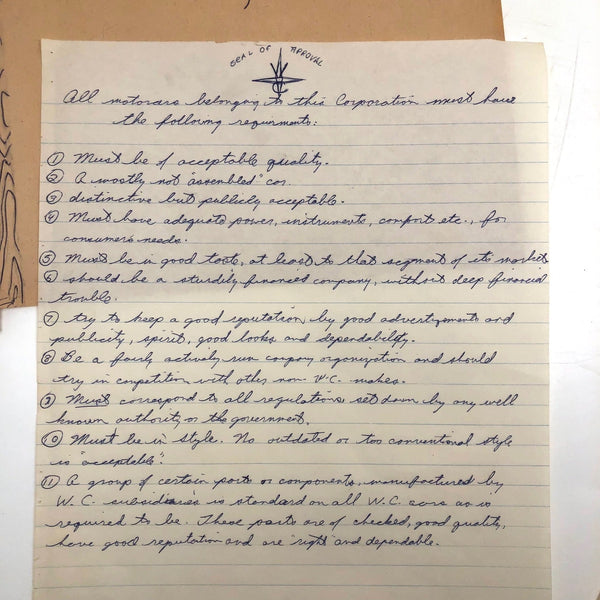 SEAL OF APPROVAL
WC
All motorcars belonging to this Corporation must have
the following requirments:
① Must be of acceptable quality.
② A mostly not "assembled" car.
③ distinctive but publicly acceptable.
④ Must have adequate power, instruments, comfort etc., for
consumer's needs.
⑤ Must be in good taste, at least to that segment of its market
⑥ should be a sturdily financed company, without deep financial
trouble.
⑦ try to keep a good reputation, by good advertizements and
publicity, spirit, good looks and dependability.
⑧ Be a fairly actively run company organization and should
try in competition with other non-W.C. makes.
⑨ Must correspond to all regulations set down by any well
known authority or the government.
⑩ Must be in style. No outdated or too conventional style
is "acceptable".
⑪ A group of certain parts or components, manufactured by
W.C. subsidiaries is standard on all W.C. cars as is
required to be. These parts are of checked, good quality,
have good reputation and are "right" and dependable.